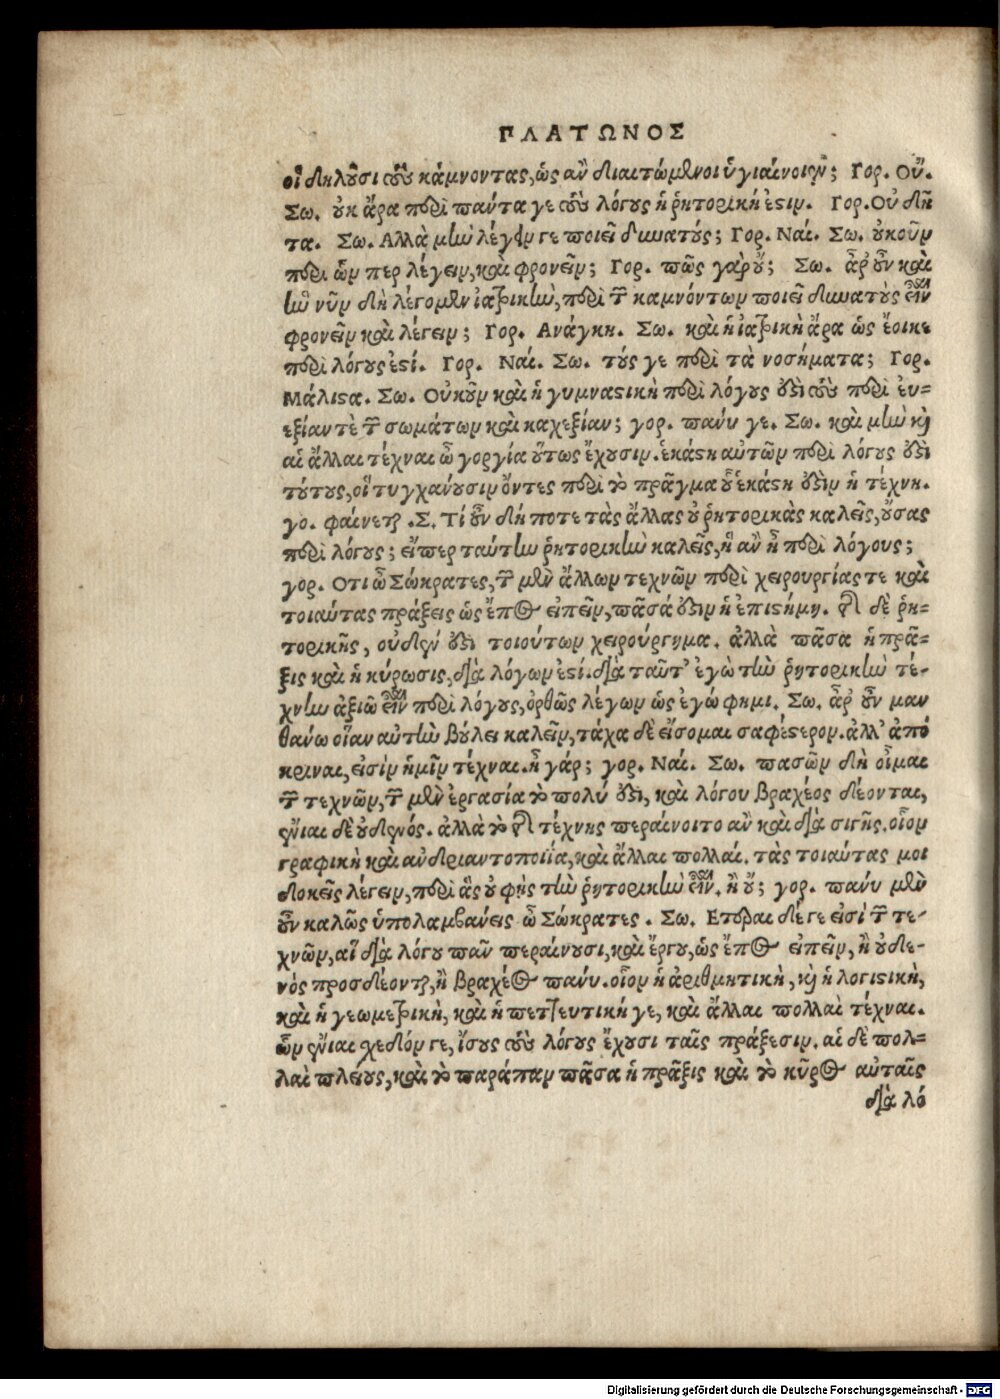 ΠΛΑΤΩΝΟΣ
οἳ δηλοῦσι τοὺς κάμνοντας, ὡς ἂν διαιτώμενοι ὑγιαίνοιεν; Γορ. Οὔ.
Σω. οὐκ ἄρα περὶ πάντα γε τοὺς λόγους ἡ ῥητορική ἐστιν. Γορ. Οὐ δῆ
τα. Σω. Αλλὰ μὴν λέγειν γε ποιεῖ δυνατούς; Γορ. Ναί. Σω. οὐκοῦν
περὶ ὧν περ λέγειν, καὶ φρονεῖν; Γορ. πῶς γὰρ οὔ; Σω. ἆρ' οὖν καὶ
ἣν νῦν δὴ λέγομεν ἰατρικὴν, περὶ τῶν καμνόντων ποιεῖ δυνατοὺς εἶναι
φρονεῖν καὶ λέγειν; Γορ. Ανάγκη. Σω. καὶ ἡ ἰατρικὴ ἄρα ὡς ἔοικε
περὶ λόγους ἐστί. Γορ. Ναί. Σω. τούς γε περὶ τὰ νοσήματα; Γορ.
Μάλιστα. Σω. Οὐκοῦν καὶ ἡ γυμναστικὴ περὶ λόγους ἐστὶ τοὺς περὶ εὐ=
εξίαν τὲ τῶν σωμάτων καὶ καχεξίαν; γορ. πάνυ γε. Σω. καὶ μὴν καὶ
αἱ ἄλλαι τέχναι ὦ γοργία οὕτως ἔχουσιν. ἑκάστη αὐτῶν περὶ λόγους ἐστὶ
τούτους, οἳ τυγχάνουσιν ὄντες περὶ τὸ πρᾶγμα οὗ ἑκάστη ἐστὶν ἡ τέχνη.
γο. φαίνεται. Σ. Τί οὖν δή ποτε τὰς ἄλλας οὐ ῥητορικὰς καλεῖς, οὔσας
περὶ λόγους; εἴπερ ταύτην ῥητορικὴν καλεῖς, ἣ ἂν ᾖ περὶ λόγους;
γορ. Οτι ὦ Σώκρατες, τῶν μὲν ἄλλων τεχνῶν περὶ χειρουργίας τε καὶ
τοιαύτας πράξεις ὡς ἔπος εἰπεῖν, πᾶσά ἐστιν ἡ ἐπιστήμη. τῆς δὲ ῥη=
τορικῆς, οὐδέν ἐστι τοιούτων χειρούργημα. ἀλλὰ πᾶσα ἡ πρᾶ=
ξις καὶ ἡ κύρωσις, διὰ λόγων ἐστί. διὰ ταῦτ' ἐγὼ τὴν ῥητορικὴν τέ-
χνην ἀξιῶ εἶναι περὶ λόγους, ὀρθῶς λέγων ὡς ἐγώ φημι. Σω. ἆρ' οὖν μαν
θάνω οἵαν αὐτὴν βούλει καλεῖν, τάχα δὲ εἴσομαι σαφέστερον. ἀλλ' ἀπό
κριναι, εἰσὶν ἡμῖν τέχναι. ἦ γάρ; γορ. Ναί. Σω. πασῶν δὴ οἶμαι
τῶν τεχνῶν, τῶν μὲν ἐργασία τὸ πολύ ἐστι, καὶ λόγου βραχέος δέονται,
ἔνιαι δὲ οὐδενός. ἀλλὰ τὸ τῆς τέχνης περαίνοιτο ἂν καὶ διὰ σιγῆς. οἷον
γραφικὴ καὶ ἀνδριαντοποιία, καὶ ἄλλαι πολλαί. τὰς τοιαύτας μοι
δοκεῖς λέγειν, περὶ ἃς οὐ φῂς τὴν ῥητορικὴν εἶναι. ἢ οὔ; γορ. πάνυ μὲν
οὖν καλῶς ὑπολαμβάνεις ὦ Σώκρατες. Σω. Ετεραι δέ γε εἰσὶ τῶν τε-
χνῶν, αἳ διὰ λόγου πᾶν περαίνουσι, καὶ ἔργου, ὡς ἔπος εἰπεῖν, ἢ οὐδε-
νὸς προσδέονται, ἢ βραχέος πάνυ. οἷον ἡ ἀριθμητικὴ, καὶ ἡ λογιστικὴ,
καὶ ἡ γεωμετρικὴ, καὶ ἡ πεττευτική γε, καὶ ἄλλαι πολλαὶ τέχναι.
ὧν ἔνιαι σχεδόν γε, ἴσους τοὺς λόγους ἔχουσι ταῖς πράξεσιν. αἱ δὲ πολ=
λαὶ πλείους, καὶ τὸ παράπαν πᾶσα ἡ πρᾶξις καὶ τὸ κῦρος αὐταῖς
διὰ λό
Digitalisierung gefördert durch die Deutsche Forschungsgemeinschaft - DFG